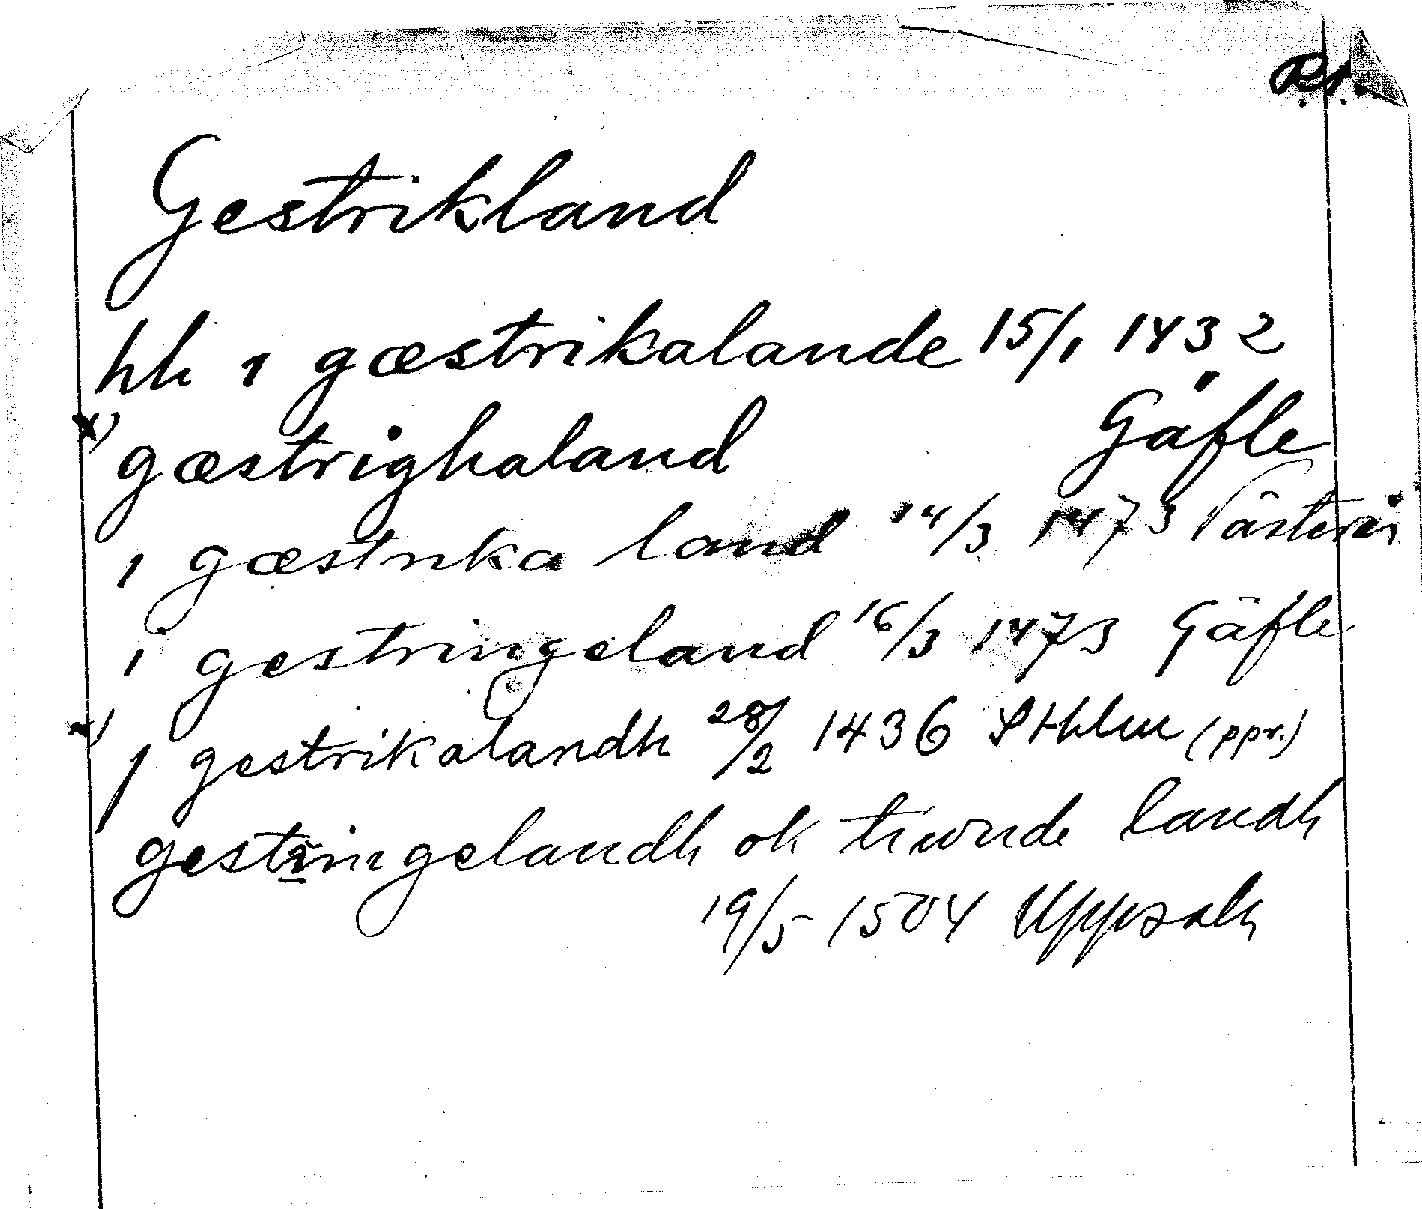 R.A.
Gestrikland
hh i gæstrikalande 15/1 1432
x) gæstrighaland Gäfle
i gæstrika land 14/3 1473 Västerås
i gestringeland 16/3 1473 Gäfle
x) j gestrikalandh 28/2 1436 Sthlm (ppr.)
gestringelandh ok tiwnde landh
19/5 1504 Uppsala